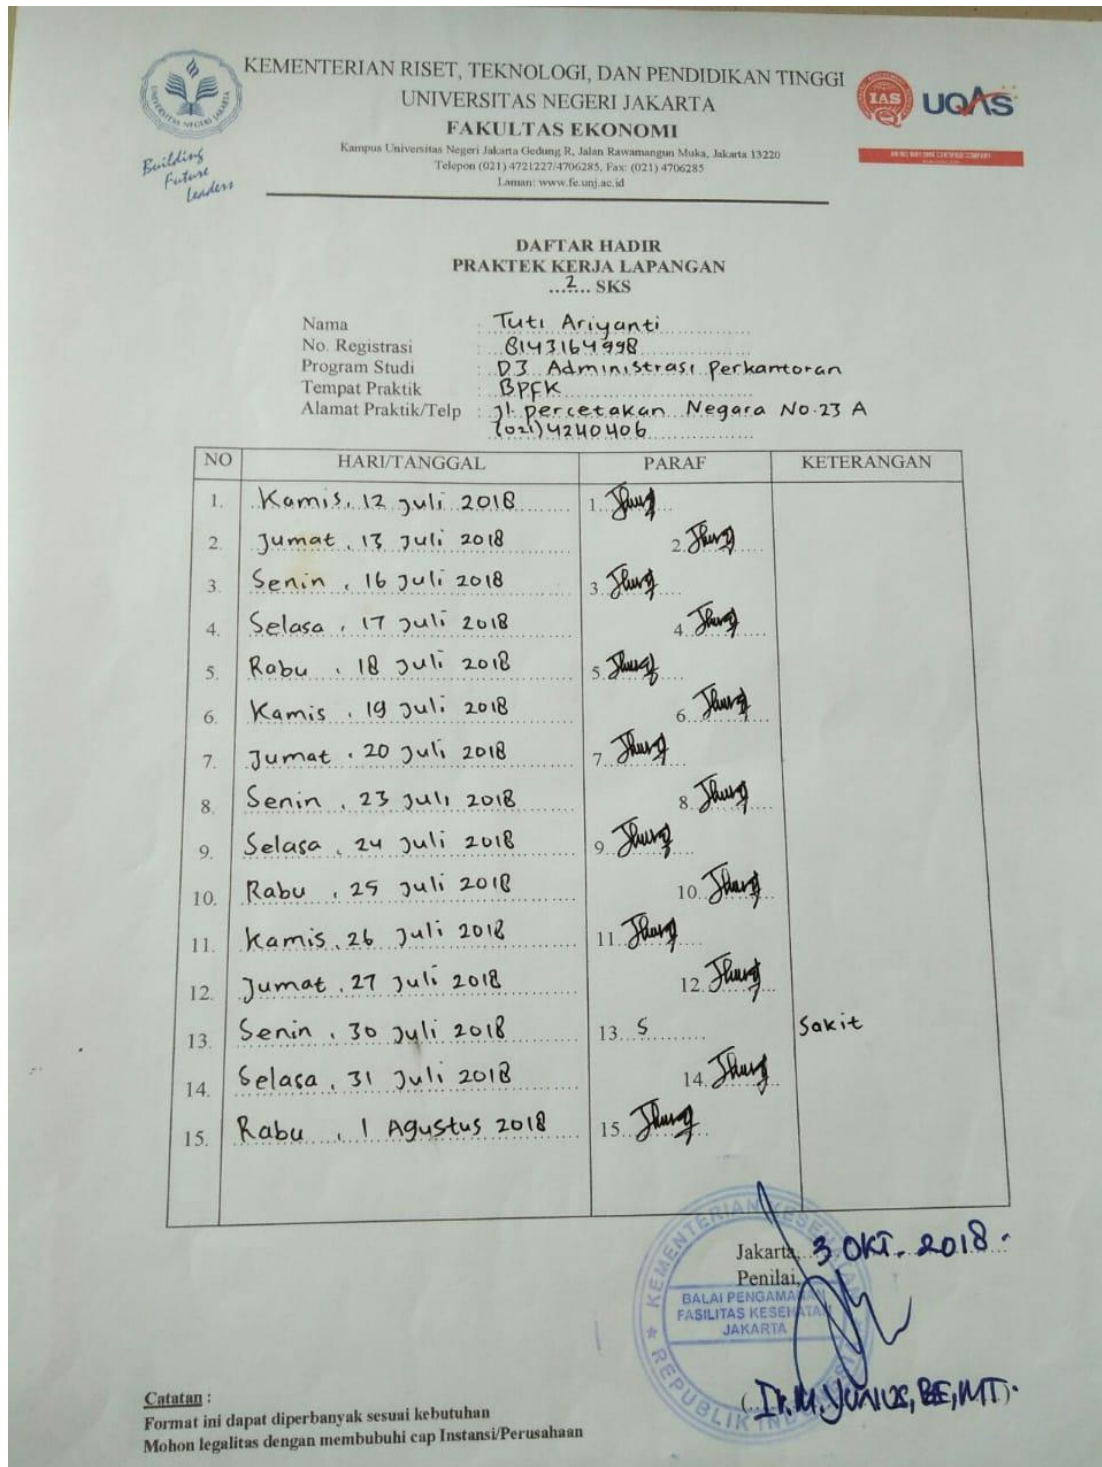 KEMENTERIAN RISET, TEKNOLOGI, DAN PENDIDIKAN TINGGI
UNIVERSITAS NEGERI JAKARTA
FAKULTAS EKONOMI
Kampus Universitas Negeri Jakarta Gedung R, Jalan Rawamangun Muka, Jakarta 13220
Telepon (021) 4721227/4706285, Fax: (021) 4706285
Laman: www.fe.unj.ac.id
UNIVERSITAS NEGERI JAKARTA
Building
Future
Leaders
IAS
UQAS
DAFTAR HADIR
PRAKTEK KERJA LAPANGAN
...2... SKS
Nama : Tuti Ariyanti
No. Registrasi : 8143164998
Program Studi : D3 Administrasi Perkantoran
Tempat Praktik : BPFK
Alamat Praktik/Telp : Jl. Percetakan Negara No.23 A
(021)4240406
NO HARI/TANGGAL PARAF KETERANGAN
1. Kamis, 12 Juli 2018 1.
2. Jumat, 13 Juli 2018 2.
3. Senin, 16 Juli 2018 3.
4. Selasa, 17 Juli 2018 4.
5. Rabu, 18 Juli 2018 5.
6. Kamis, 19 Juli 2018 6.
7. Jumat, 20 Juli 2018 7.
8. Senin, 23 Juli 2018 8.
9. Selasa, 24 Juli 2018 9.
10. Rabu, 25 Juli 2018 10.
11. Kamis, 26 Juli 2018 11.
12. Jumat, 27 Juli 2018 12.
13. Senin, 30 Juli 2018 13. S Sakit
14. Selasa, 31 Juli 2018 14.
15. Rabu, 1 Agustus 2018 15.
Jakarta, 3 OKT. 2018.
Penilai,
KEMENTERIAN KESEHATAN
BALAI PENGAMANAN
FASILITAS KESEHATAN
JAKARTA
REPUBLIK INDONESIA
(Ir. M. YUNUS, BE, MT).
Catatan :
Format ini dapat diperbanyak sesuai kebutuhan
Mohon legalitas dengan membubuhi cap Instansi/Perusahaan